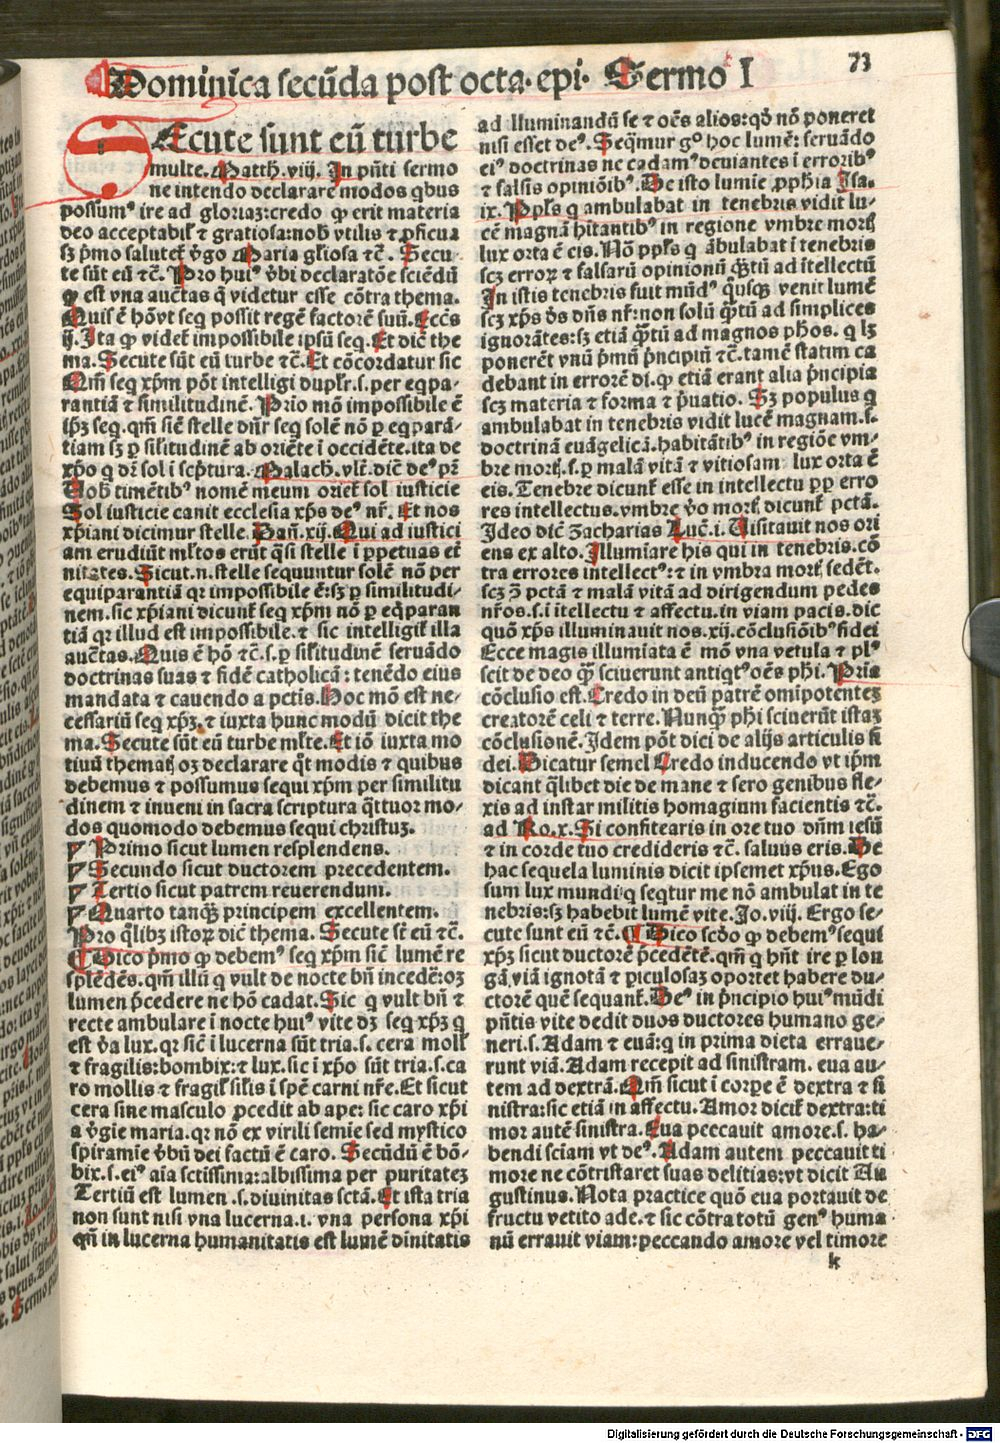 73
Dominica secūda post octa. epi. Sermo I
SEcute sunt eū turbe
multe. Matth. viij. In pn̄ti sermo
ne intendo declarare modos qbus
possumꝰ ire ad gloriaz: credo ꝙ erit materia
deo acceptabil' ⁊ gratiosa: nob' vtilis ⁊ ꝓficua
sꝫ p̄mo salutet' v̄go Maria gl'iosa ⁊c̄. Secu-
te sūt eū ⁊c̄. Pro huiꝰ v̄bi declaratōe sciēdū
ꝙ est vna auc̄tas q̄ videtur esse cōtra thema.
Quis ē hōvt seq possit regē factorē suū. Ecc̄s
ij. Ita ꝙ videt' impossibile ipsū seq. Et dic̄t the
ma. Secute sūt eū turbe ⁊c̄. Et cōcordatur sic
Qm̄ seq xp̄m pōt intelligi dupl'r. s. per eqpa-
rantiā ⁊ similitudinē. Prio mō impossibile ē
ip̄ꝫ seq. qm̄ siē stelle dn̄r seq solē nō ꝑ eqparā-
tiam sꝫ ꝑ silitudinē ab oriēte i occidēte. ita de
xp̄o q dr̄ sol i scp̄tura. Malach. vlt̄. dic̄ deꝰ pr̄
Uob' timētibꝰ nomē meum oriet' sol iusticie
Sol iusticie canit ecclesia xp̄s deꝰ nr̄. Et nos
xp̄iani dicimur stelle. Dan̄. xij. Qui ad iustici
am erudiūt ml'tos erūt q̄si stelle i ꝑpetuas et̄
nitates. Sicut. n. stelle sequuntur solē nō per
equiparantiā qr impossibile ē: sꝫ ꝑ similitudi-
nem. sic xp̄iani dicunt' seq xp̄m nō ꝑ eqparan
tiā qr illud est impossibile. ⁊ sic intelligit' illa
auc̄tas. Quis ē hō ⁊c̄. s. ꝑ silitudinē seruādo
doctrinas suas ⁊ fidē catholicā: tenēdo eius
mandata ⁊ cauendo a pctis. Hoc mō est ne-
cessariū seq xp̄ꝫ. ⁊ iuxta hunc modū dicit the
ma. Secute sūt eū turbe ml'te. Et iō iuxta mo
tiuū thematis oꝫ declarare q̄t modis ⁊ quibus
debemus ⁊ possumus sequi xp̄m per similitu
dinem ⁊ inueni in sacra scriptura q̄ttuor mo-
dos quomodo debemus sequi christuꝫ.
Primo sicut lumen resplendens.
Secundo sicut ductorem precedentem.
Tertio sicut patrem reuerendum.
Quarto tanq̄ꝫ principem excellentem.
Pro q̄libꝫ istoꝝ dic̄ thema. Secute st̄ eū ⁊c̄.
Dico p̄mo ꝙ debemꝰ seq xp̄m siē lumē re
splēdēs. qm̄ illū q vult de nocte bn̄ incedē: oꝫ
lumen p̄cedere ne hō cadat. Sic q vult bn̄ ⁊
recte ambulare i nocte huiꝰ vite dꝫ seq xp̄ꝫ q
est v̄a lux. qr siē i lucerna sūt tria. s. cera moll'
⁊ fragilis: bombix: ⁊ lux. sic i xp̄o sūt tria. s. ca
ro mollis ⁊ fragil' silis i sp̄e carni nr̄e. Et sicut
cera sine masculo ꝓcedit ab ape: sic caro xp̄i
a v̄gie maria. qr nō ex virili semie sed mystico
spiramie v̄bū dei factū ē caro. Secūdū ē bō-
bix. s. eiꝰ aīa sctissima: albissima per puritateꝫ
Tertiū est lumen .s. diuinitas sctā. Et ista tria
non sunt nisi vna lucerna. i. vna persona xp̄i
qm̄ in lucerna humanitatis est lumē diuītatis
ad lluminandū se ⁊ oēs alios: qd̄ nō poneret
nisi esset deꝰ. Seqmur gꝰ hoc lumē: seruādo
eiꝰ doctrinas ne cadamꝰ deuiantes i erroribꝰ
⁊ falsis opiniōibꝰ. De isto lumie ꝓph̄ia Isa.
ix. Ppl's q ambulabat in tenebris vidit lu-
cē magnā hītantibꝰ in regione vmbre mortis
lux orta ē eis. Nō ppl's q ābulabat i tenebris
scꝫ erroꝝ ⁊ falsarū opinionū q̄tū ad ītellectū
In istis tenebris fuit mūdꝰ q̄usqꝫ venit lumē
scꝫ xp̄s dn̄s nr̄: non solū q̄tū ad simplices
ignorātes: sꝫ etiā q̄tū ad magnos ph̄os. q lꝫ
ponerēt vnū p̄mū p̄ncipiū ⁊c̄. tamē statim ca
debant in errorē di. ꝙ etiā erant alia p̄ncipia
scꝫ materia ⁊ forma ⁊ p̄uatio. Sꝫ populus q
ambulabat in tenebris vidit lucē magnam. s.
doctrinā euāgelicā. habitātibꝰ in regiōe vm-
bre mortis. s. ꝑ malā vitā ⁊ vitiosam lux orta ē
eis. Tenebre dicunt' esse in intellectu ꝓp erro
res intellectus. vmbre v̄o mortis dicunt' pctā.
Ideo dic̄ Zacharias Luc̄. i. Uisitauit nos ori
ens ex alto. Illumiare his qui in tenebris. cō
tra errores intellectꝰ: ⁊ in vmbra mortis sedēt.
scꝫ ꝯ pctā ⁊ malā vitā ad dirigendum pedes
nr̄os. s. i ītellectu ⁊ affectu. in viam pacis. dic
quō xp̄s illuminauit nos. xij. cōclusiōibꝰ fidei
Ecce magis illumiata ē mō vna vetula ⁊ plꝰ
scit de deo q̄ꝫ sciuerunt antiqtꝰ oēs ph̄i. Pria
cōclusio est. Credo in deū patrē omīpotenteꝫ
creatorē celi ⁊ terre. Nunq̄ꝫ ph̄i sciuerūt istaꝫ
cōclusionē. Idem pōt dici de alijs articulis fi
dei. Dicatur semel Credo inducendo vt ip̄m
dicant q̄libet die de mane ⁊ sero genibus fle-
xis ad instar militis homagium facientis ⁊c̄.
ad Ro. x. Si confitearis in ore tuo dn̄m iesū
⁊ in corde tuo credideris ⁊c̄. saluus eris. De
hac sequela luminis dicit ipsemet xp̄us. Ego
sum lux mundi: q seqtur me nō ambulat in te
nebris: sꝫ habebit lumē vite. Jo. viij. Ergo se-
cute sunt eū ⁊c̄. Dico scdo ꝙ debemꝰ sequi
xp̄ꝫ sicut ductorē p̄cedētē. qm̄ q hn̄t ire ꝑ lon
gā viā ignotā ⁊ piculosaꝫ oportet habere du-
ctorē quē sequant'. Deꝰ in p̄ncipio huiꝰ mūdi
pn̄tis vite dedit duos ductores humano ge-
neri. s. Adam ⁊ euā: q in prima dieta erraue-
runt viā. Adam recepit ad sinistram. eua au-
tem ad dextrā. Qm̄ sicut i corꝑe ē dextra ⁊ si
nistra: sic etiā in affectu. Amor dicit' dextra: ti
mor autē sinistra. Eua peccauit amore. s. ha-
bendi sciam vt deꝰ. Adam autem peccauit ti
more ne cōtristaret suas delitias: vt dicit Au
gustinus. Nota practice quō eua portauit de
fructu vetito ade. ⁊ sic cōtra totū genꝰ huma
nū errauit viam: peccando amore vel timore
k
Digitalisierung gefördert durch die Deutsche Forschungsgemeinschaft - DFG